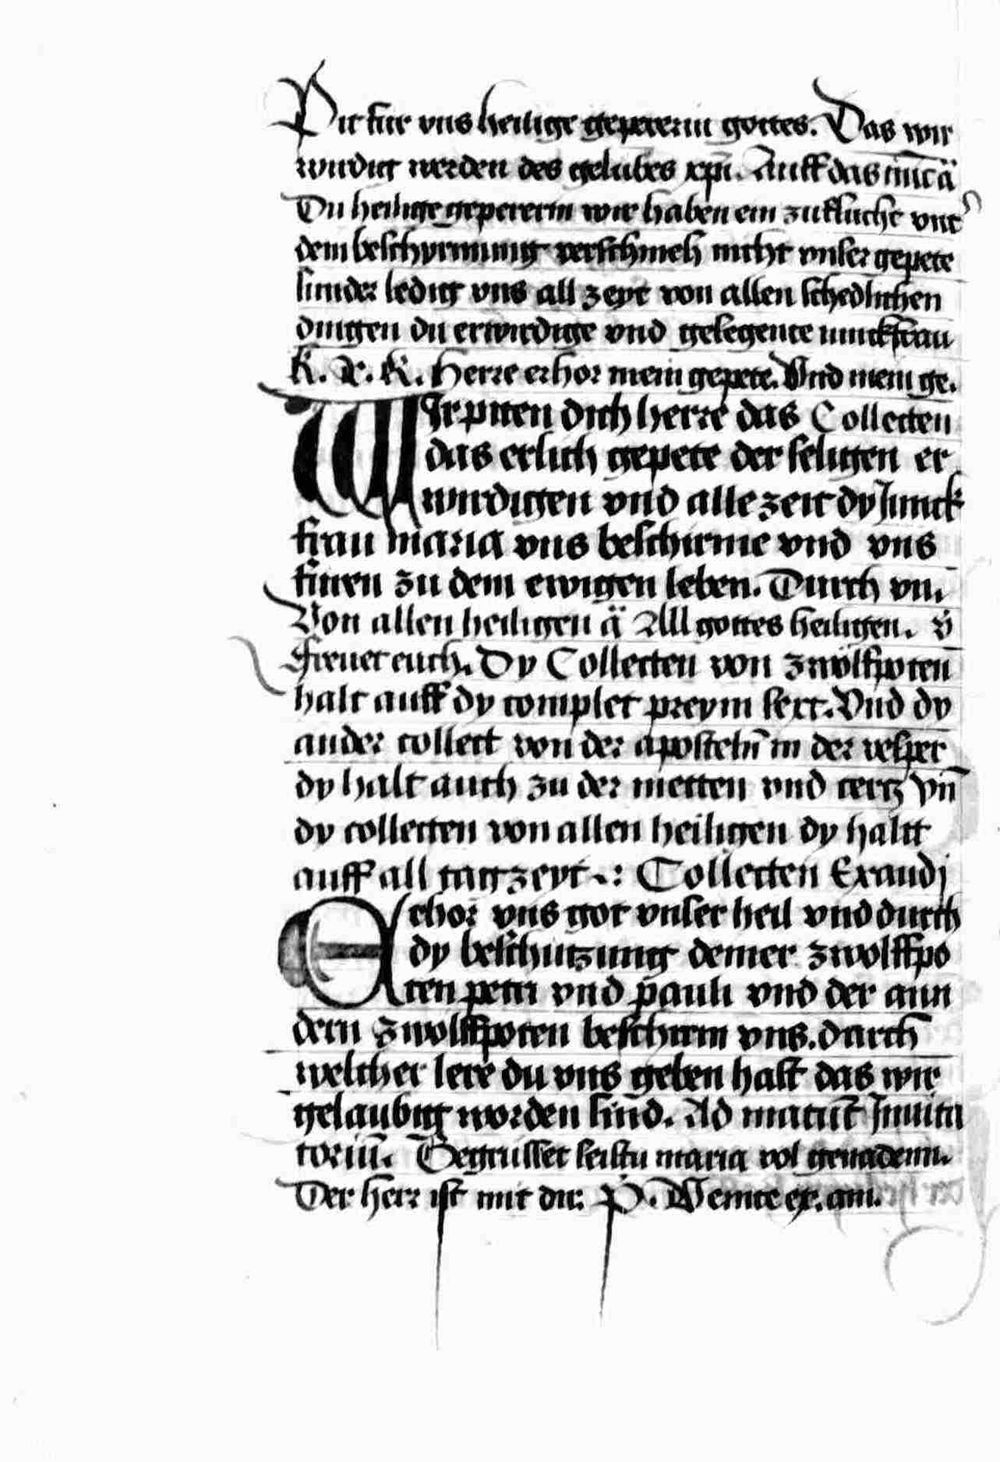 Pit fur vns heilige gepererin gottes. Das wir
wirdig werden des gelubes xpi. Auff das nūc ā
Du heilige gepererin wir haben ein zuflucht vnt
dem beschyrmung verschmeh nicht vnser gepete
sunder ledig vns all zeyt von allen schedlichen
dingen du erwirdige vnd gesegente iunckfrau
K. X. K. Herre erhor mein gepete. Vnd mein ge.
WJr piten dich herre das Collecten
das erlich gepete der seligen er
wirdigen vnd alle zeit dy Junck
frau maria vns beschirme vnd vns
füren zu dem ewigen leben. Durch vn.
Von allen heiligen ā All gottes heiligen. v̄
Freuet euch. Dy Collecten von zwölfpoten
halt auff dy complet preym sext. Vnd dy
ander collect von der aposteln̄ in der vesper
dy halt auch zu der metten vnd tertz vn̄
dy collecten von allen heiligen dy haltt
auff all tag zeyt .: Collecten Exaudj
Erhor vns got vnser heil vnd durch
dy beschutzung deiner zwolffpo
ten petri vnd pauli vnd der ann
dern zwolffpoten beschirm vns. durch
welcher lere du vns geben hast das wir
gelaubig worden sind. Ad matut̄ Jnuita
toriū. Gegrusset seistu maria vol genadenn.
Der herr ist mit dir. P. Wenite ex. am.